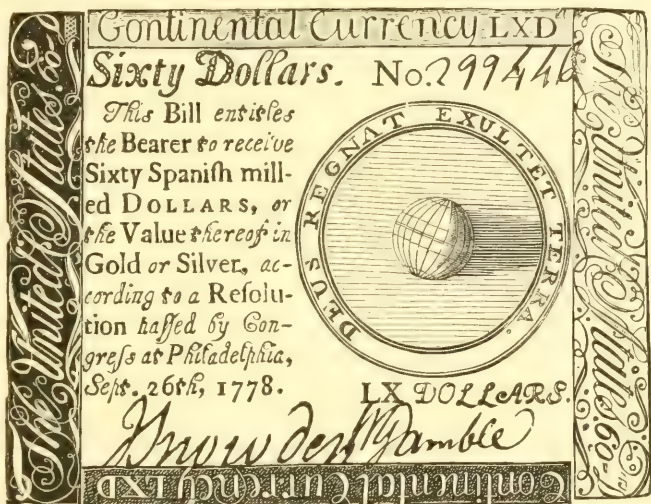 Continental Currency LXD
Sixty Dollars. No. 299446
This Bill entitles
the Bearer to receive
Sixty Spanish mill-
ed DOLLARS, or
the Value thereof in
Gold or Silver, ac-
cording to a Resolu-
tion passed by Con-
gress at Philadelphia,
Sept. 26th, 1778.
DEUS REGNAT EXULTET TERRA.
LX DOLLARS.
Gamble
Continental Currency LXD
The United States. 60
The United States. 60